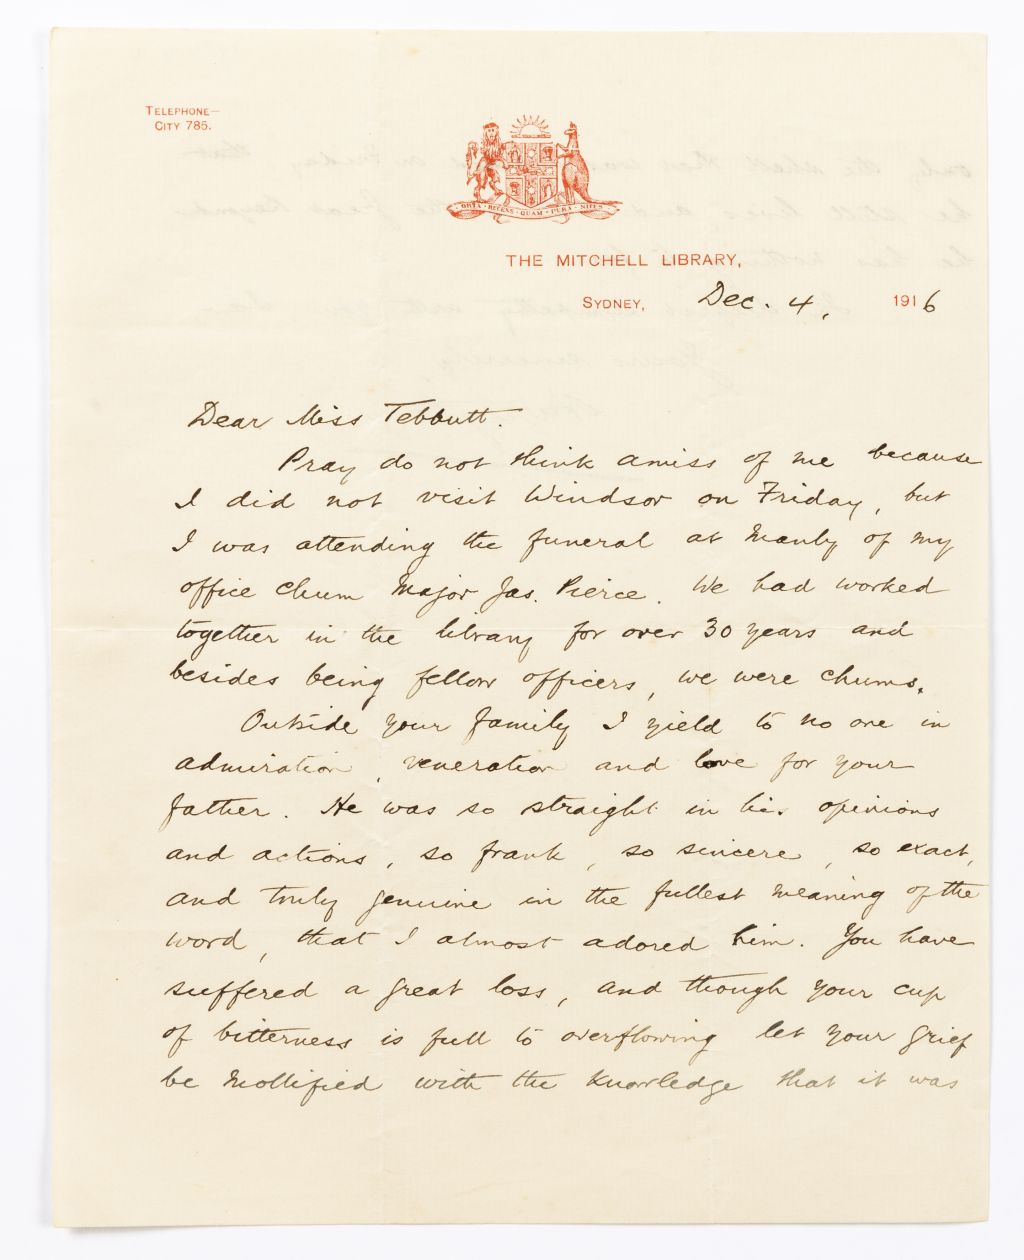 TELEPHONE—
CITY 785.
ORTA · RECENS · QUAM · PURA · NITES
THE MITCHELL LIBRARY,
SYDNEY, Dec. 4, 1916
Dear Miss Tebbutt.
Pray do not think amiss of me because
I did not visit Windsor on Friday, but
I was attending the funeral at Manly of my
office chum Major Jas. Pierce. We had worked
together in the library for over 30 years and
besides being fellow officers, we were chums.
Outside your family I yield to no one in
admiration, veneration and love for your
father. He was so straight in his opinions
and actions, so frank, so sincere, so exact,
and truly genuine in the fullest meaning of the
word, that I almost adored him. You have
suffered a great loss, and though your cup
of bitterness is full to overflowing let your grief
be mollified with the knowledge that it was